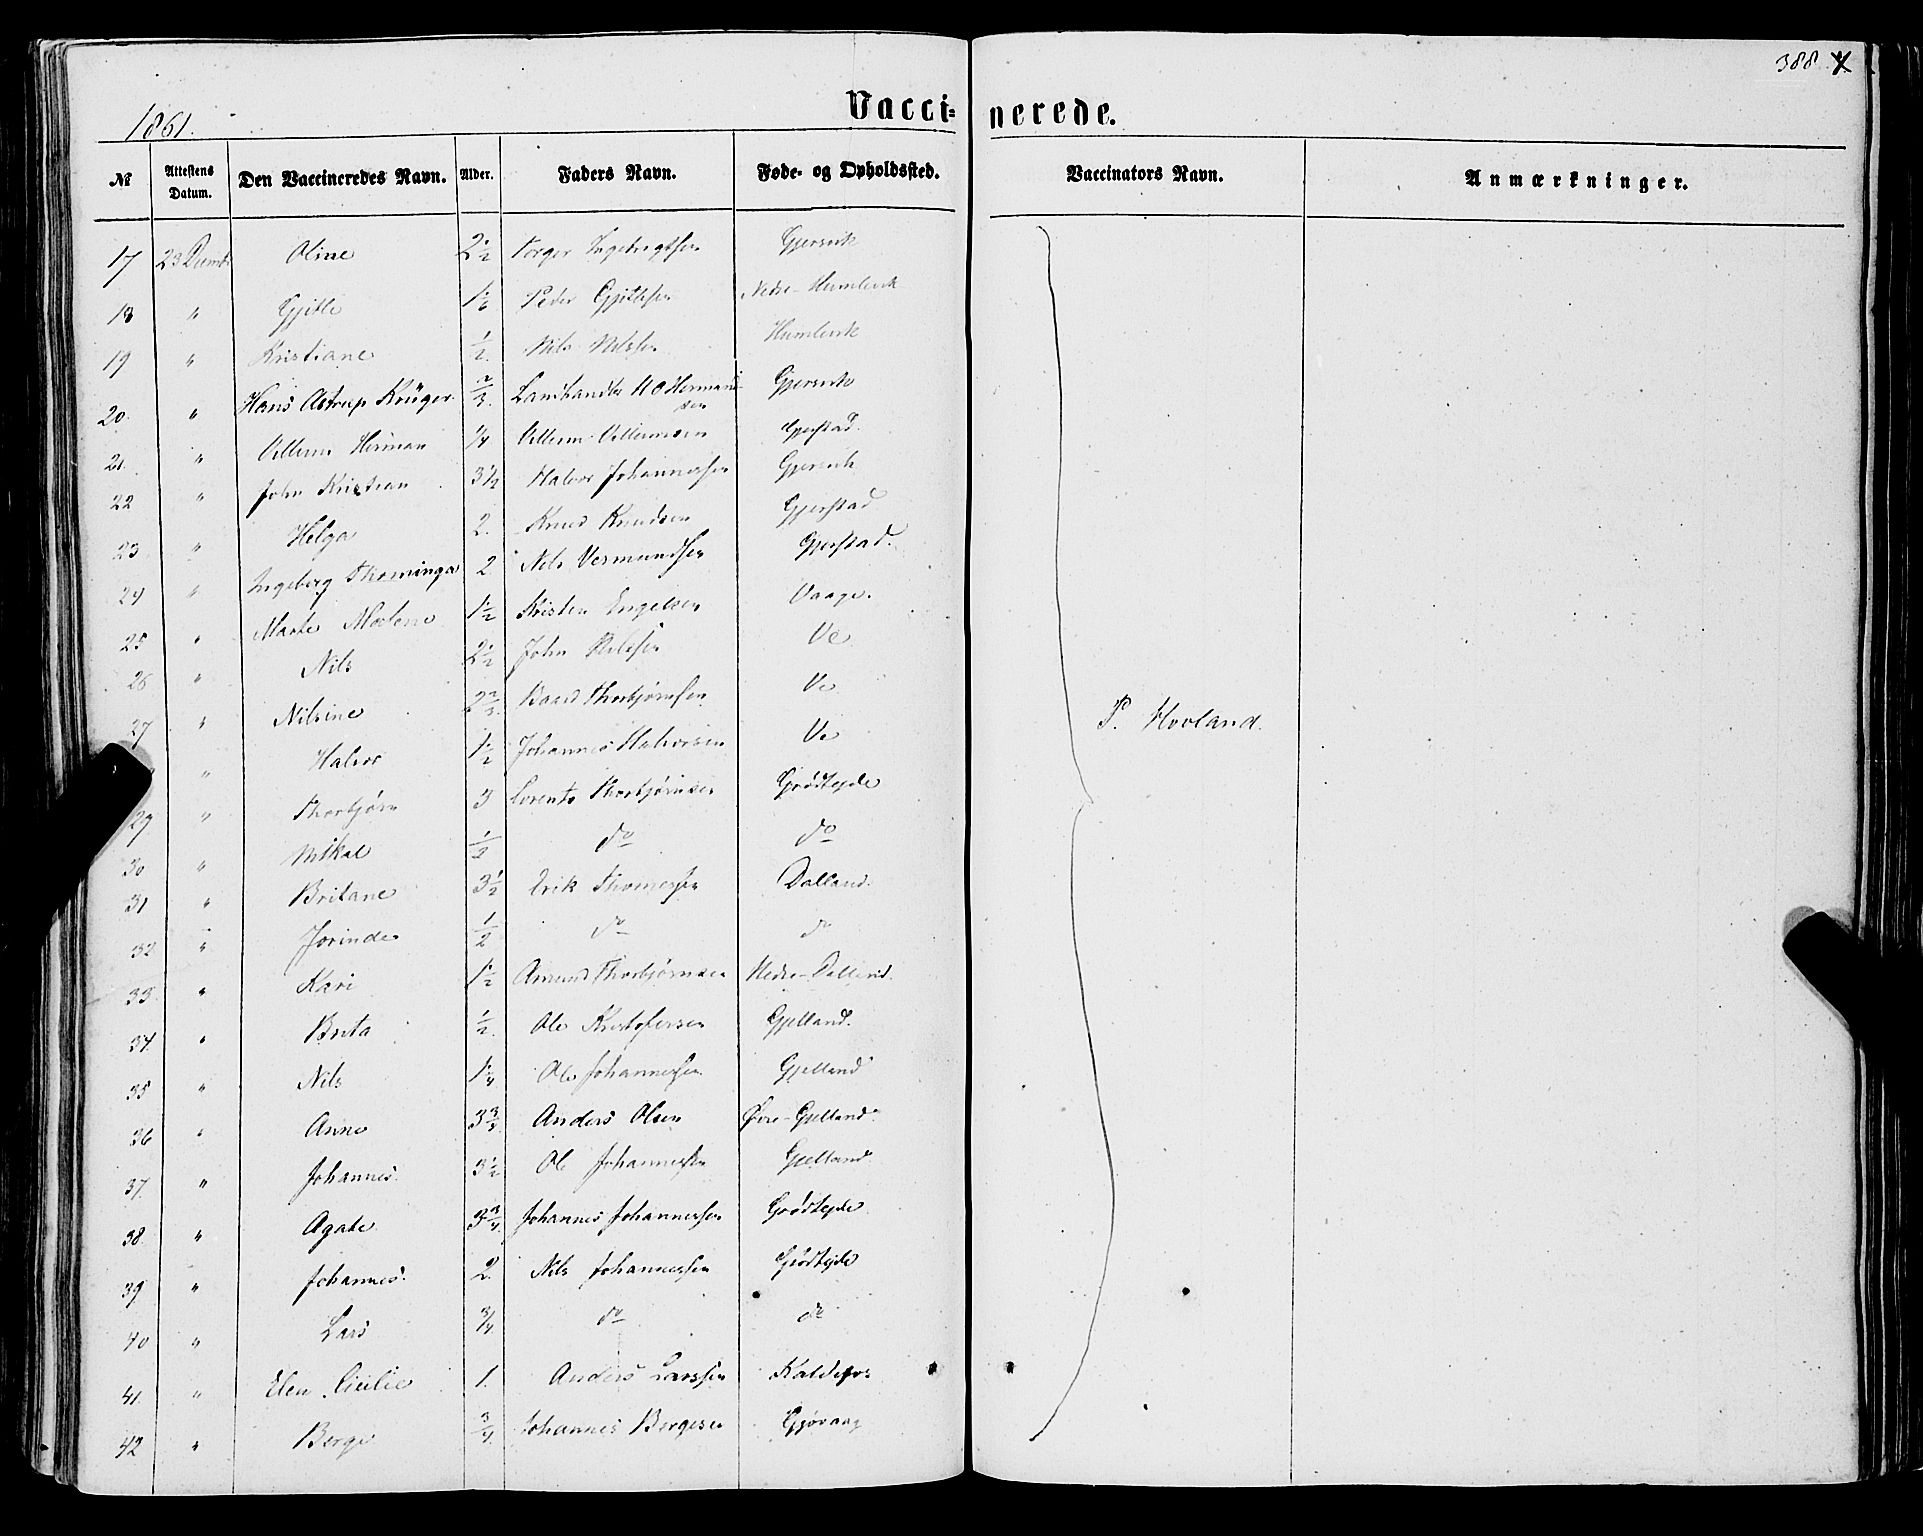 388
1861.
Vacci= nerede.
№ Attestens Datum. Den Vaccineredes Navn. Alder. Faders Navn. Føde- og Opholdssted. Vaccinators Navn. Anmærkninger.
17 23 Decembr Oline 2 1/2 Torger Ingebrigtsen Gjersvik
18 " Gjitle Peder Gjitlesen Nedre-Humlevik
19 " Kristiane 1/2 Nils Nilssen Humlevik
20. " Hans Astrup Krüger 2/3. Landhandler Hermand-
sen Gjersvik
21. " Villum Herman 1/4 Villum Villumsen Gjerstad.
22 " John Kristian 3 1/2 Halvor Johannessen Gjersvik
23 " Helga 2. Knud Knudsen Gjerstad
24 " Ingeborg Thominga 2 Nils Vermundsen Gjerstad.
25 " Marte Malene 1 1/2 Kristen Engelsen Vaage.
26 " Nils 2 1/2 John Nilssen Ve
27 " Nilsine 2 2/3. Baard Thorbjørnsen Ve
" Halvor 1 1/2 Johannes Halvorsen Ve
29 " Thorbjørn 3 Lorents Thorbjørnsen Grødtejde
30 " Mikal 1/2 do do
31 " Britane 3 1/2 Erik Thomessen Dalland.
32 " Jorinde 1/2 do do
33 " Kari 1 1/2 Amund Thorbjørnsen Nedre-Dalland.
34 " Brita 1/2. Ole Kristofersen Gjelland.
35 " Nils 1 1/4 Ole Johannessen Gjelland
36 " Anne 3 3/4 Anders Olsen Øvre-Gjelland.
37. " Johannes. 3 1/2 Ole Johannessen Gjelland
38 " Agate 3 3/4 Johannes Johannessen Grødtejde
39 " Johannes. 2. Nils Johannessen Grødtejde
40 " Lars 3/4 do do
41 " Elen Cicilie 1. Anders Larssen Kaldefos
42 " Berge 3/4. Johannes Bergesen Gjøvaag
P. Hovland.